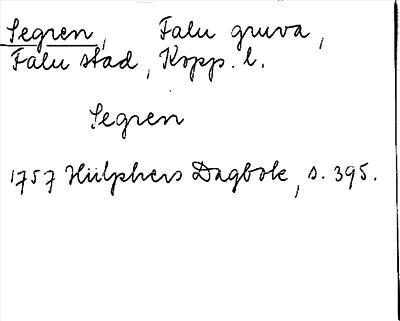 Segren, Falu gruva,
Falu stad, Kopp. l.
Segren
1757 Hülphers Dagbok, s. 395.